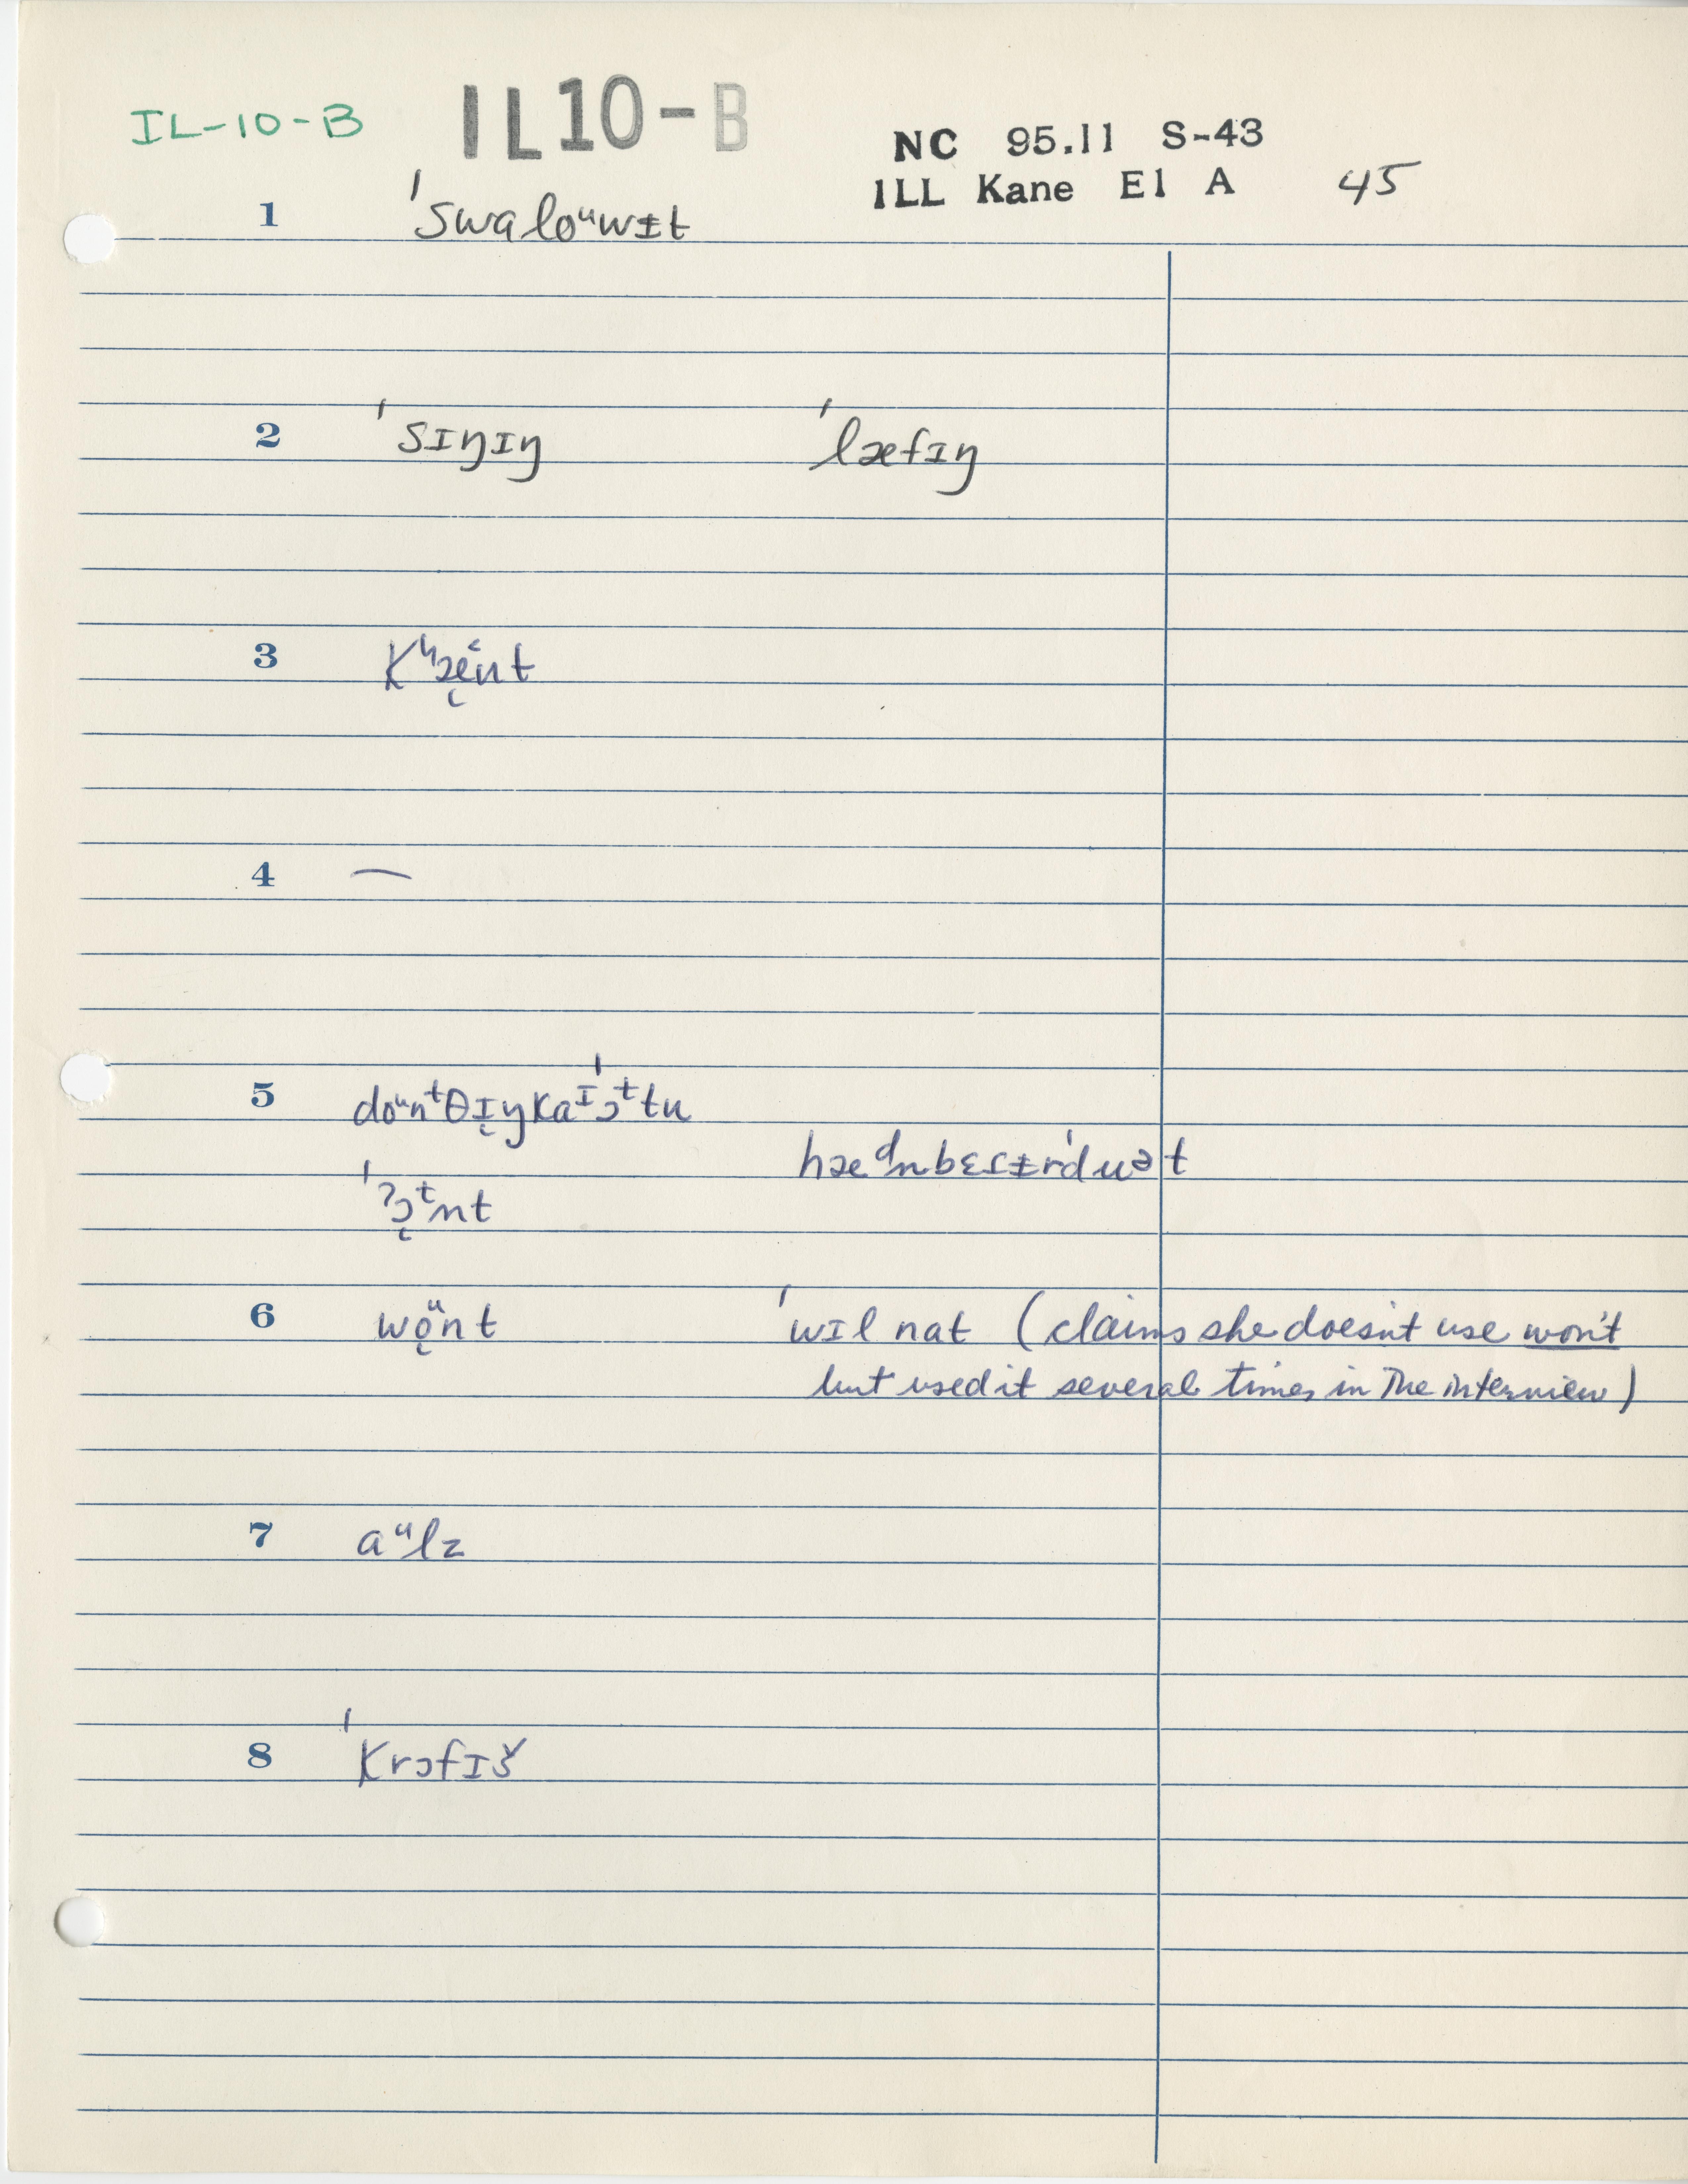 IL-10-B IL10-B NC 95.11 S-43
ILL Kane El A 45
1 ˈswaloᵘwɨt
2 ˈsɪŋɪŋ ˈlæfɪŋ
3 Kʰæ̜ᵋnt
4 —
5 doᵘnᵗθɪ̜ŋkaᴵˈɔᵗtu
hædn̩bɛɾɨrˈduət
ˈʔɔ̜ᵗn̩t
6 wo̜ᵘnt ˈwɪl nat (claims she doesn't use won't
but used it several times in the interview)
7 aᵘlz
8 ˈKrɔfɪš